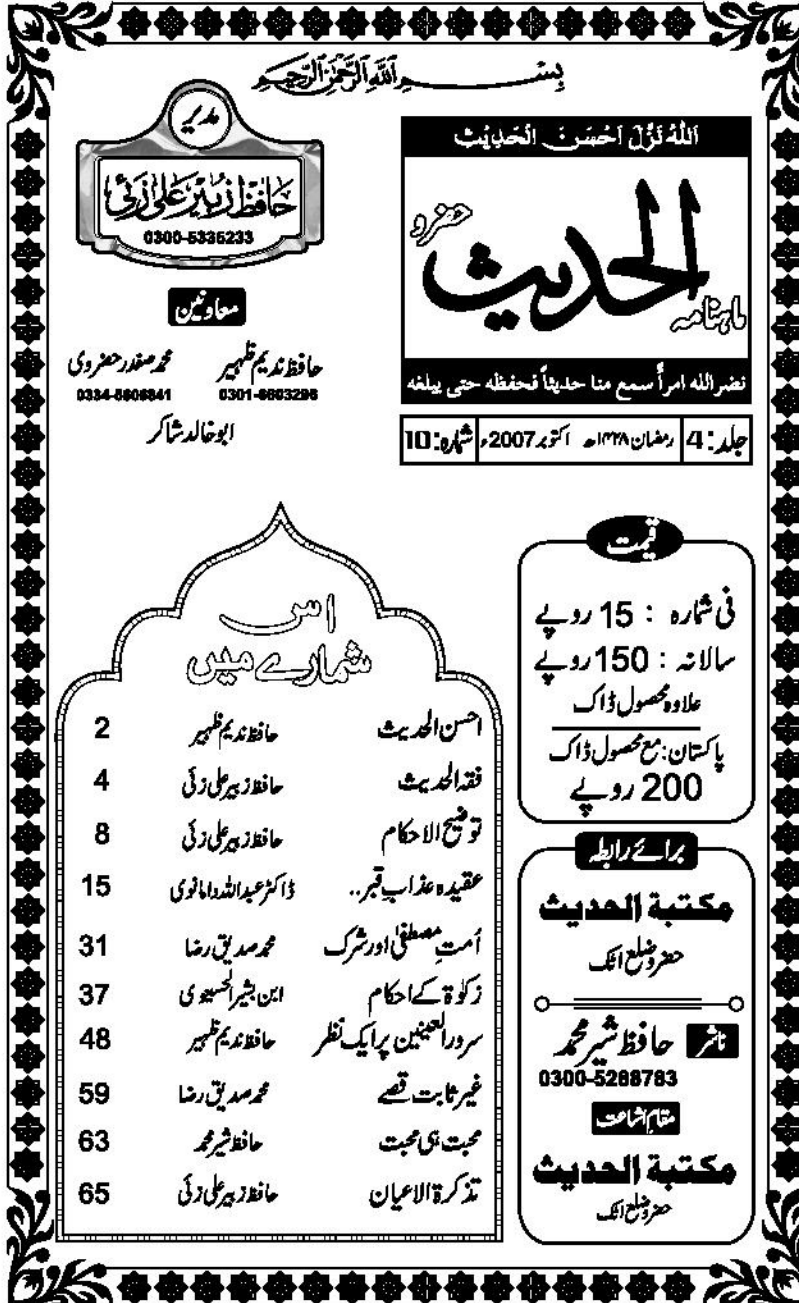 بِسْمِ اللّٰهِ الرَّحْمٰنِ الرَّحِيْمِ
اَللّٰهُ نَزَّلَ اَحْسَنَ الْحَدِيْثِ
ماہنامہ الحدیث حضرو
نضر الله امرأً سمع منا حديثاً فحفظه حتى يبلغه
جلد: 4 رمضان ۱۴۲۸ھ اکتوبر 2007ء شمارہ: 10
مدیر
حافظ زبیر علی زئی
0300-5335233
معاونین
حافظ ندیم ظہیر محمد صفدر حضروی
0301-6603296 0334-5606841
ابو خالد شاکر
قیمت
فی شمارہ : 15 روپے
سالانہ : 150 روپے
علاوہ محصول ڈاک
پاکستان: مع محصول ڈاک
200 روپے
برائے رابطہ
مکتبة الحدیث
حضرو ضلع اٹک
ناشر حافظ شیر محمد
0300-5288783
مقام اشاعت
مکتبة الحدیث
حضرو ضلع اٹک
اس
شمارے میں
احسن الحدیث حافظ ندیم ظہیر 2
فقہ الحدیث حافظ زبیر علی زئی 4
توضیح الاحکام حافظ زبیر علی زئی 8
عقیدہ عذابِ قبر.. ڈاکٹر عبداللہ دامانوی 15
اُمتِ مصطفیٰ اور شرک محمد صدیق رضا 31
زکوٰۃ کے احکام ابن بشیر الحسینوی 37
سرور العینین پر ایک نظر حافظ ندیم ظہیر 48
غیر ثابت قصے محمد صدیق رضا 59
محبت ہی محبت حافظ شیر محمد 63
تذکرۃ الاعیان حافظ زبیر علی زئی 65